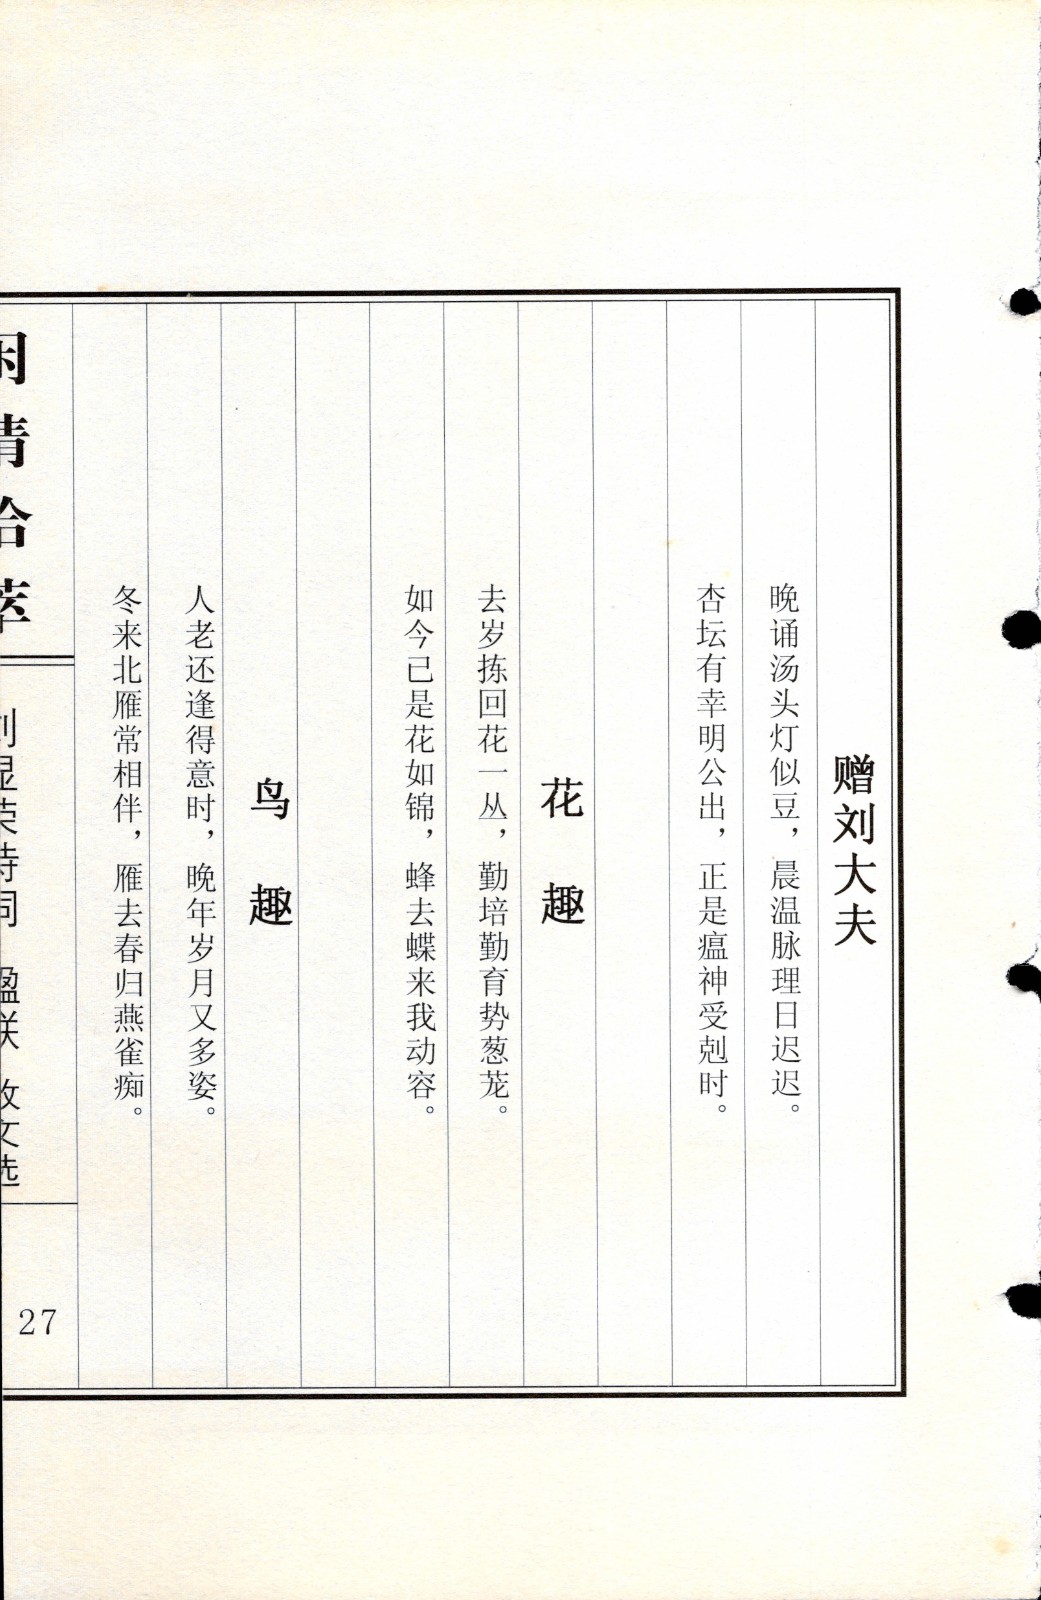 赠刘大夫
晚诵汤头灯似豆，晨温脉理日迟迟。
杏坛有幸明公出，正是瘟神受剋时。
花趣
去岁拣回花一丛，勤培勤育势葱茏。
如今已是花如锦，蜂去蝶来我动容。
鸟趣
人老还逢得意时，晚年岁月又多姿。
冬来北雁常相伴，雁去春归燕雀痴。
闲情拾萃
刘显荣诗词 楹联 散文选
27